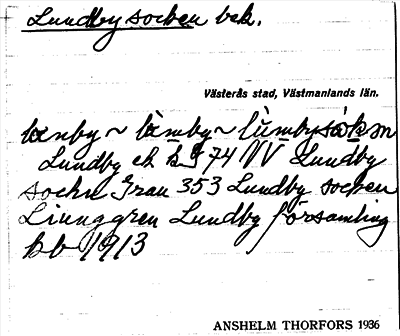 Lundby socken bek.
Västerås stad, Västmanlands län.
lènby ~ lèmby ~ lùmbysòkən
Lundby ek 1574 VV Lundby
sockn Grau 353 Lundby socken
Liunggren Lundby församling
kb 1913
ANSHELM THORFORS 1936